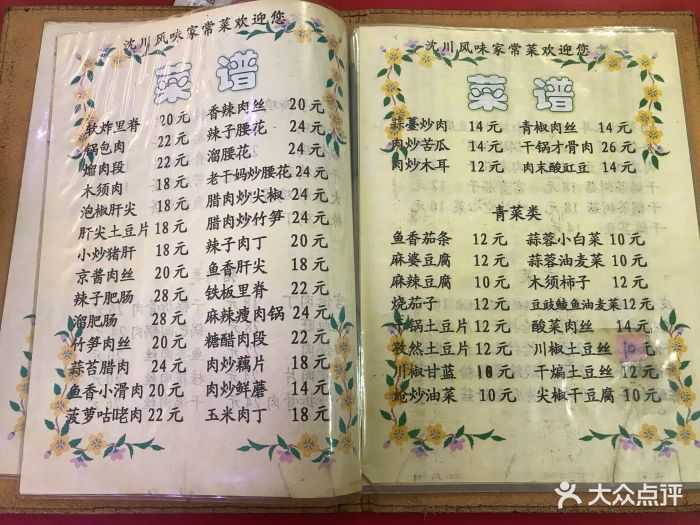 沈川风味家常菜欢迎您
菜谱
软炸里脊 20元
锅包肉 22元
熘肉段 22元
木须肉 18元
泡椒肝尖 18元
肝尖土豆片 18元
小炒猪肝 18元
京酱肉丝 20元
辣子肥肠 28元
溜肥肠 28元
竹笋肉丝 20元
蒜苔腊肉 24元
鱼香小滑肉 20元
菠萝咕咾肉 22元
香辣肉丝 20元
辣子腰花 24元
溜腰花 24元
老干妈炒腰花 24元
腊肉炒尖椒 24元
腊肉炒竹笋 24元
辣子肉丁 20元
鱼香肝尖 18元
铁板里脊 22元
麻辣瘦肉锅 24元
糖醋肉段 22元
肉炒藕片 18元
肉炒鲜蘑 14元
玉米肉丁 18元
沈川风味家常菜欢迎您
菜谱
蒜薹炒肉 14元 青椒肉丝 14元
肉炒苦瓜 14元 干锅才骨肉 26元
肉炒木耳 12元 肉末酸豇豆 14元
青菜类
鱼香茄条 12元 蒜蓉小白菜 10元
麻婆豆腐 12元 蒜蓉油麦菜 10元
麻辣豆腐 10元 木须柿子 12元
烧茄子 12元 豆豉鲮鱼油麦菜12元
干锅土豆片 12元 酸菜肉丝 14元
孜然土豆片 12元 川椒土豆丝 10元
川椒甘蓝 18元 干煸土豆丝 12元
炝炒油菜 10元 尖椒干豆腐 10元
大众点评